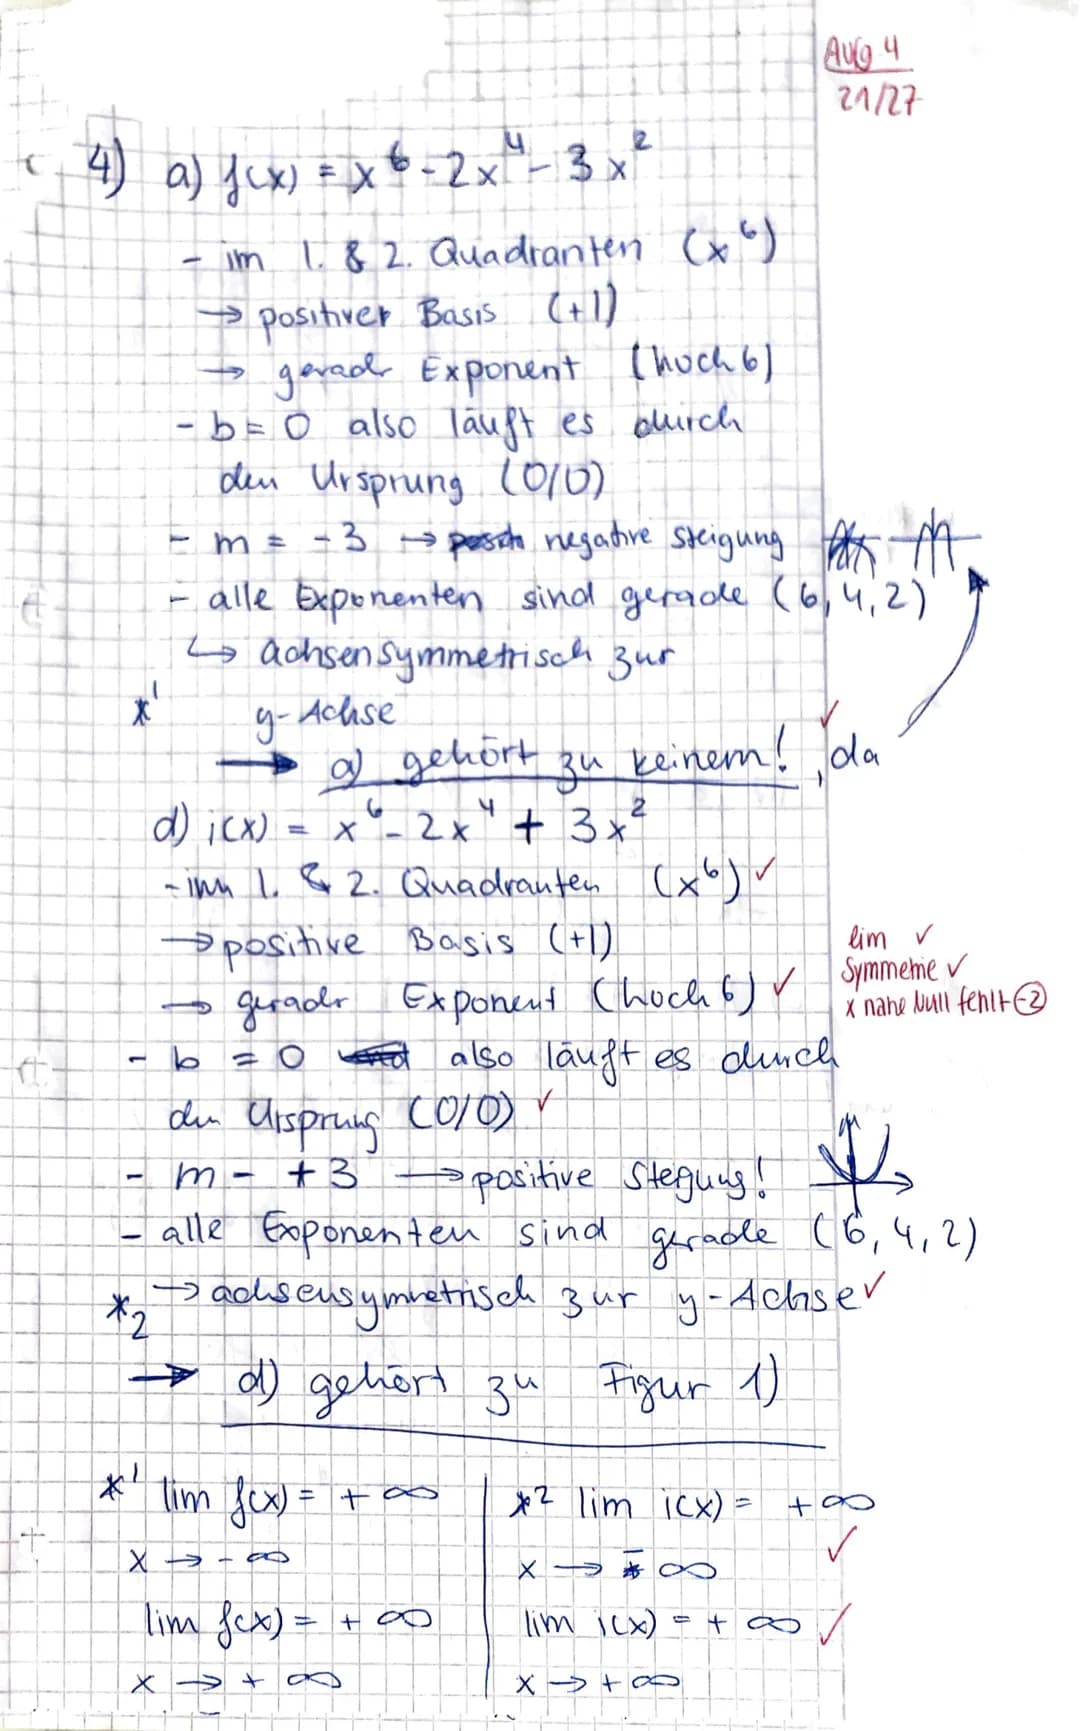 Aufg 4
21/27
4) a) f(x) = x⁶ - 2x⁴ - 3x²
- im 1. & 2. Quadranten (x⁶)
→ positiver Basis (+1)
→ gerader Exponent (hoch 6)
- b = 0 also läuft es durch
den Ursprung (0/0)
- m = -3 → negative Steigung
- alle Exponenten sind gerade (6, 4, 2)
↳ achsensymmetrisch zur
*¹ y-Achse
→ a) gehört zu keinem! ✓, da
d) i(x) = x⁶ - 2x⁴ + 3x²
- im 1. & 2. Quadranten (x⁶) ✓
→ positive Basis (+1)
→ gerader Exponent (hoch 6) ✓
lim ✓
Symmetrie ✓
x nahe Null fehlt -2
- b = 0 also läuft es durch
den Ursprung (0/0) ✓
- m - +3 → positive Stegung!
- alle Exponenten sind gerade (6, 4, 2)
*2 → achsensymmetrisch zur y-Achse ✓
→ d) gehört zu Figur 1)
*¹ lim f(x) = + ∞
x → - ∞
lim f(x) = + ∞
x → + ∞
*² lim i(x) = + ∞ ✓
x → - ∞
lim i(x) = + ∞ ✓
x → + ∞